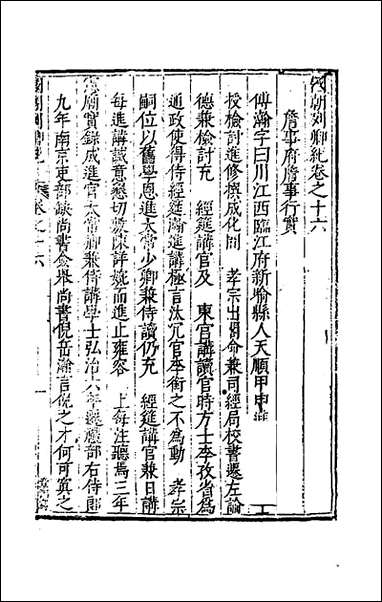 國朝列卿紀卷之十六
詹事府詹事行實
傅瀚字曰川江西臨江府新喻縣人天順甲申進
授檢討進修撰成化間 孝宗出閣命兼司經局校書遷左諭
德兼檢討充 經筵講官及 東宫講讀官時方士李孜省為
通政使得侍經筵瀚進講極言汰冗官李銜之不為動 孝宗
嗣位以舊學恩進太常少卿兼侍讀仍充 經筵講官兼日講
每進講誠意懇切敷陳詳婉而進止雍容 上每注聽焉三年
憲廟實錄成進官太常卿兼侍講學士弘治六年遷禮部右侍郎
九年南京吏部缺尚書僉舉尚書倪岳瀚言倪之才何可置之
卷之十六